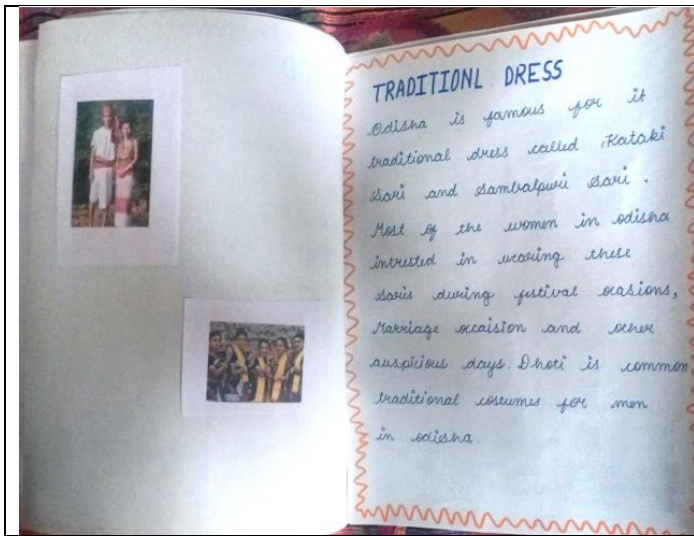 TRADITIONL DRESS
Odisha is famous for it
traditional dress called Kataki
Sari and Sambalpuri Sari.
Most of the women in odisha
intrested in wearing these
saris during festival ocasions,
Marriage occaision and other
auspicious days. Dhoti is common
traditional costumes for men
in odisha.